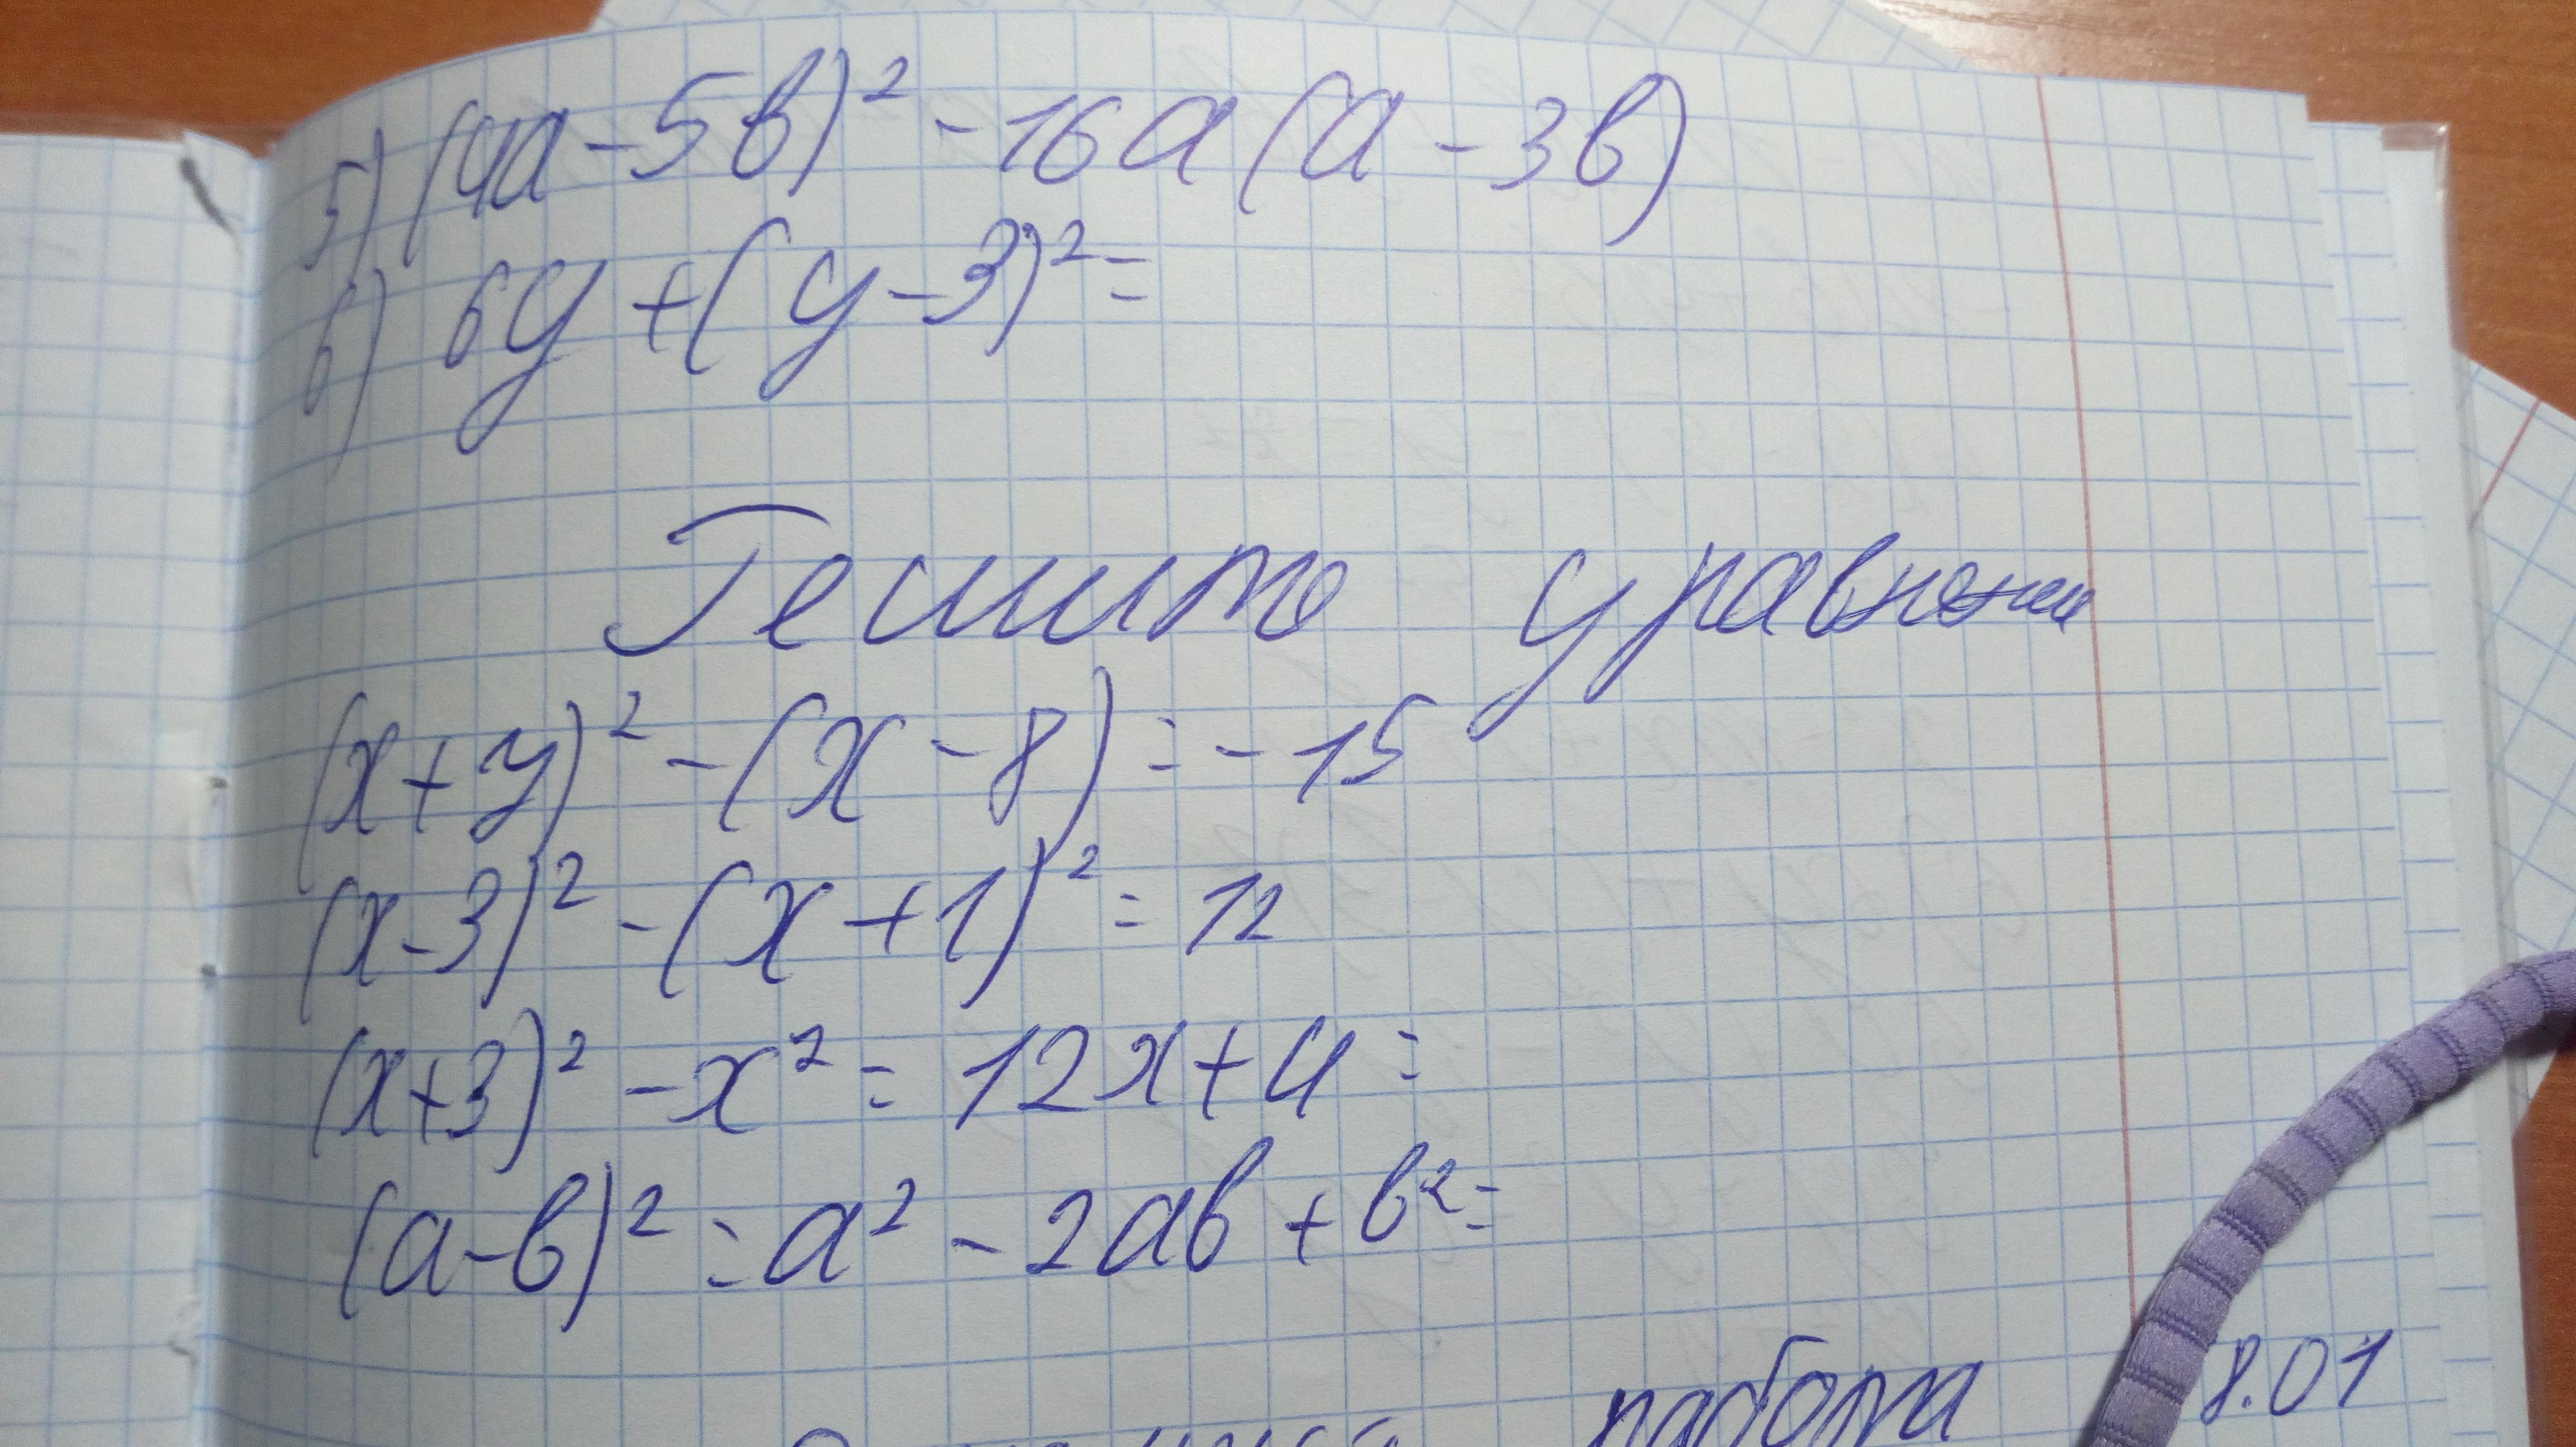 5) (4а-5в)² -16а(а-3в)
6) 6у+(у-3)²=
Решите уравнения
(x+у)² -(x-8)=-15
(x-3)² -(x+1)² = 12
(x+3)² -x² = 12x+4=
(а-в)² = а² - 2ав + в²=
работа 8.01